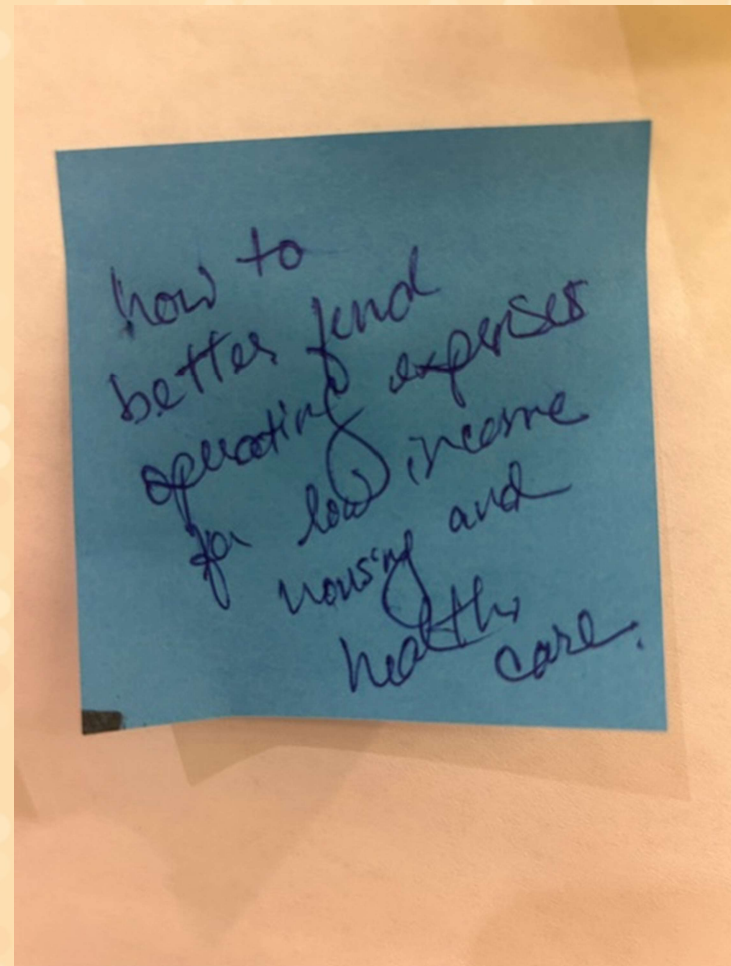 how to
better fund
operating expenses
for low income
housing and
health
care.